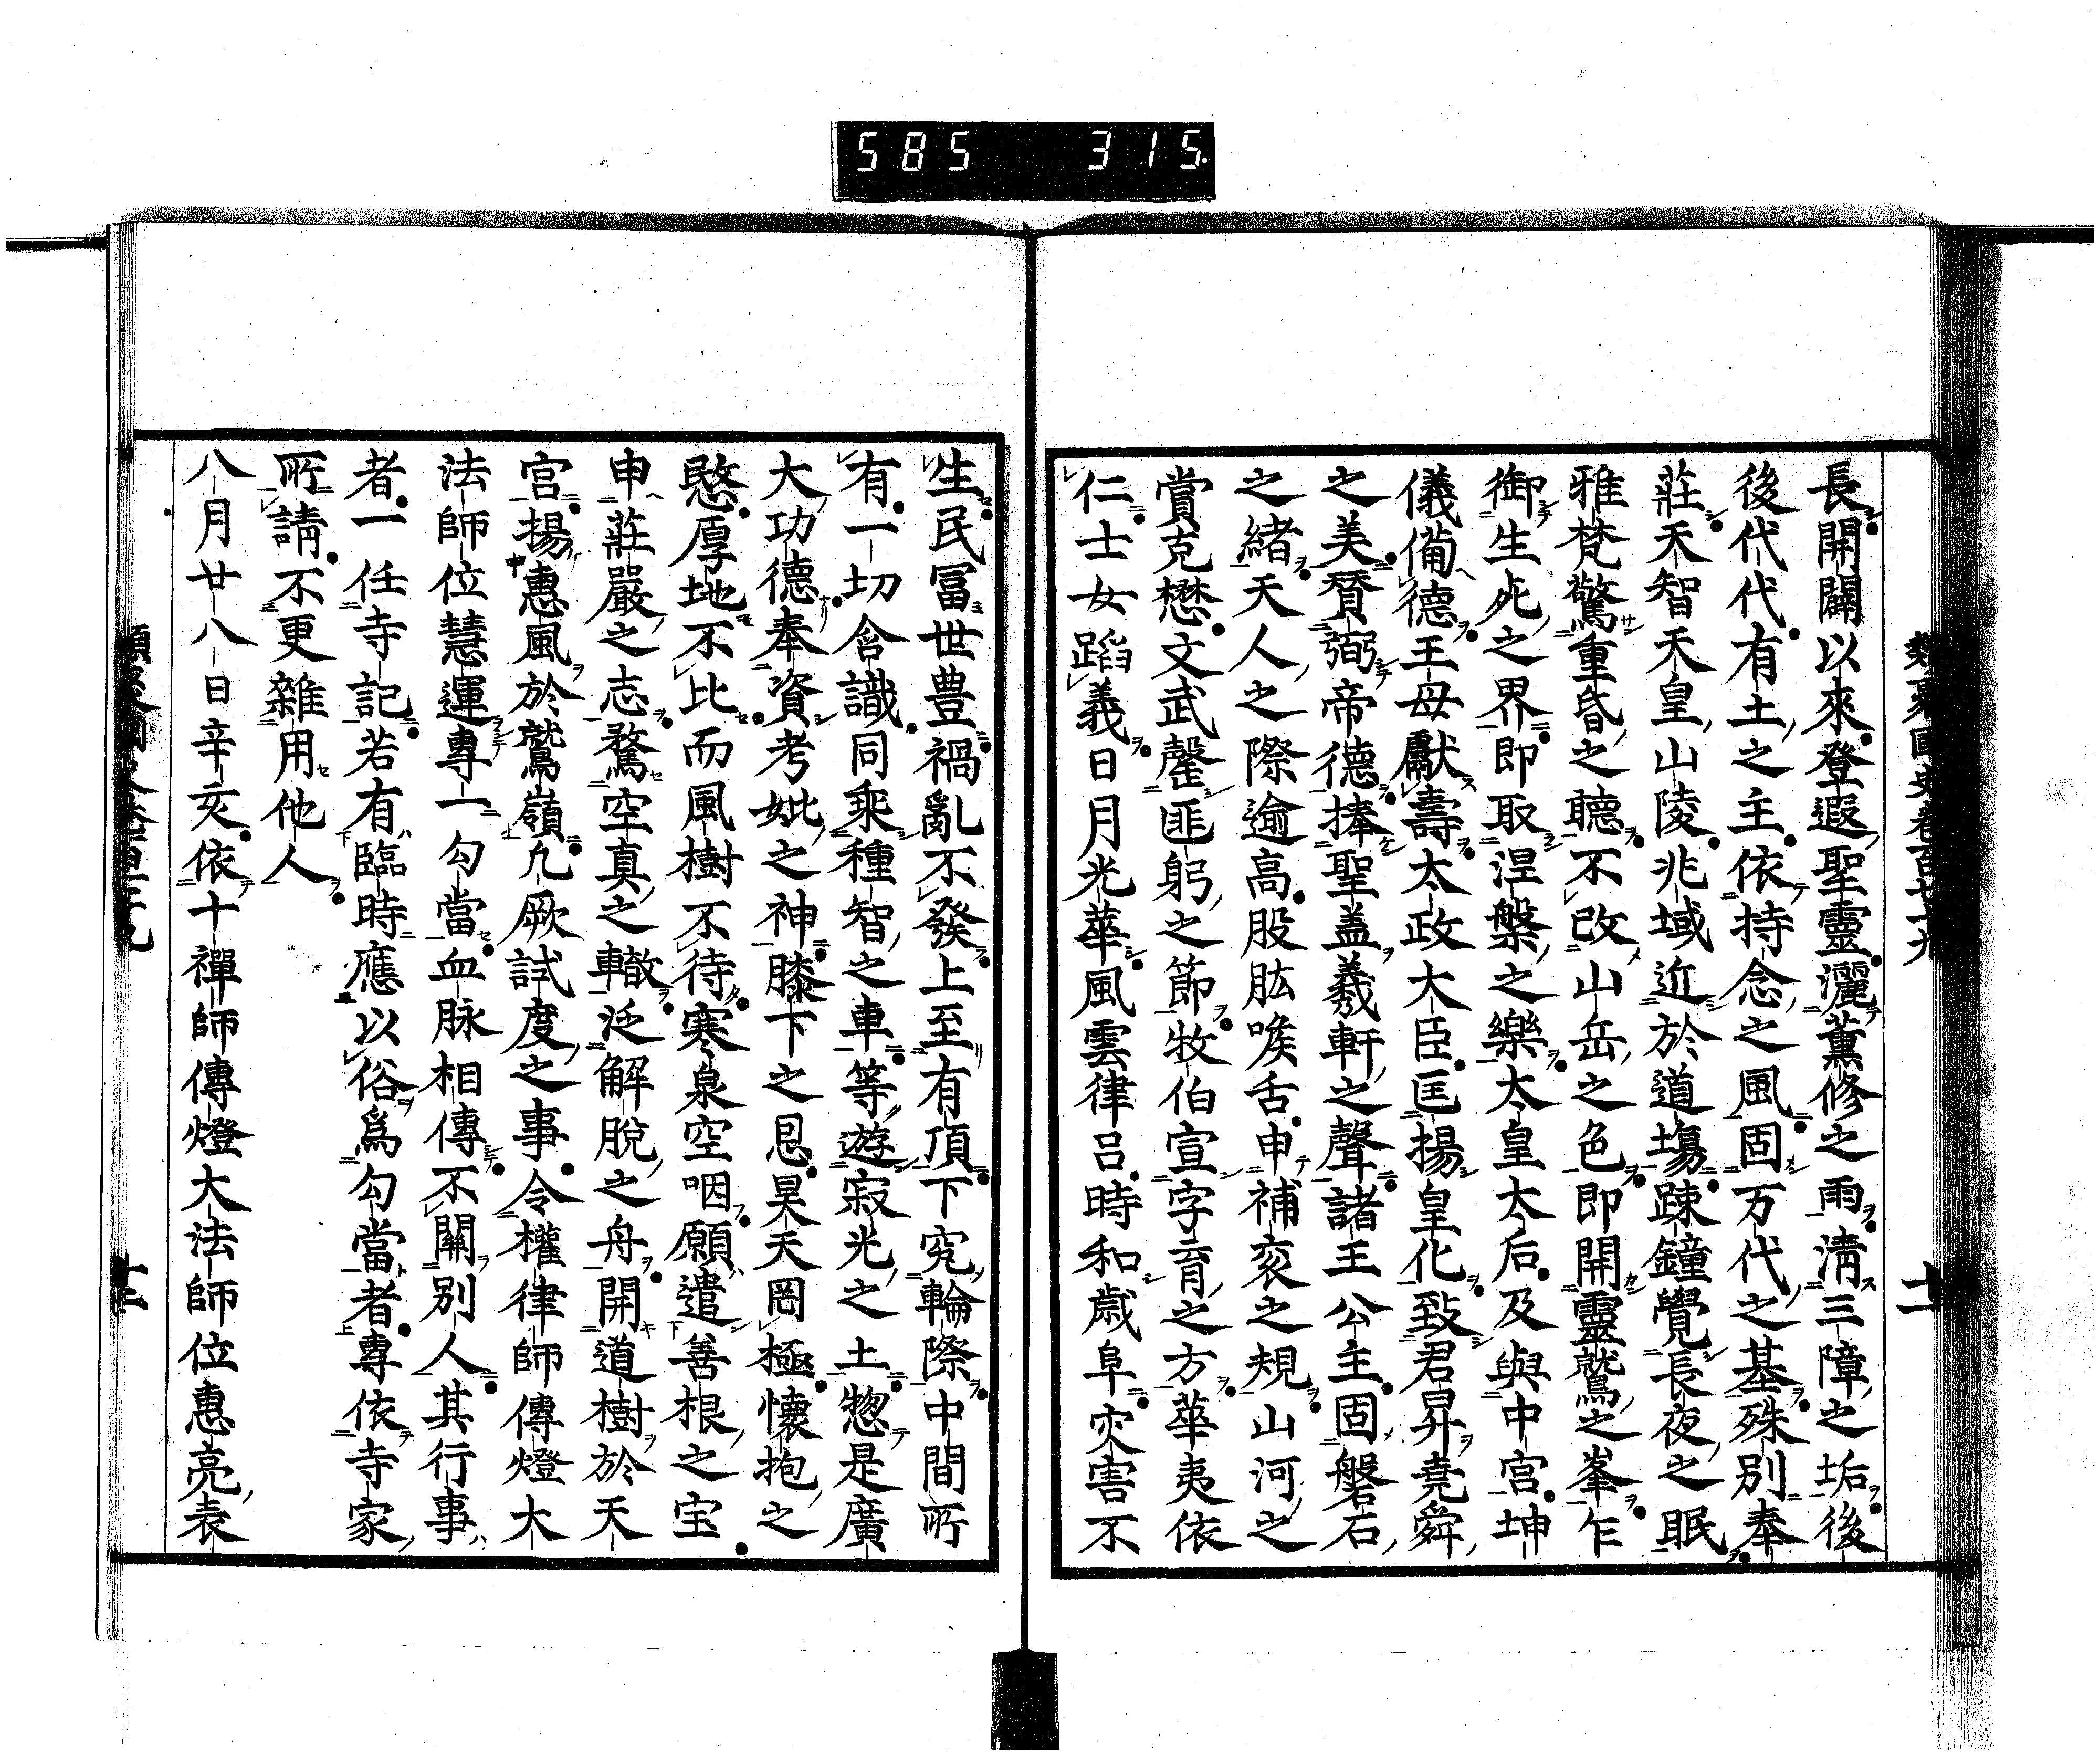 585 315
長開闢以來登遐聖靈灑薰修之雨清三障之垢後
後代代有土之主依持念之風固万代之基殊別奉
莊天智天皇山陵兆域近於道塲踈鐘覺長夜之眠
雅梵驚重昏之聽不改山岳之色即開靈鷲之峯乍
御生死之界即取涅槃之樂太皇太后及與中宮坤
儀備德王母獻壽太政大臣匡揚皇化致君昇堯舜
之美賛弼帝德捧聖盖羲軒之聲諸王公主固磐石
之緒天人之際逾高股肱喉舌申補衮之規山河之
賞克懋文武罄匪躬之節牧伯宣字育之方華夷依
仁士女蹈義日月光華風雲律呂時和歲阜灾害不
生民冨世豊禍亂不發上至有頂下究輪際中間所
有一切含識同乘種智之車等遊寂光之土惣是廣
大功德奉資考妣之神膝下之恩昊天罔極懷抱之
愍厚地不比而風樹不待寒泉空咽願遣善根之宝
申莊嚴之志騖空真之轍泛解脫之舟開道樹於天
宮揚惠風於鷲嶺凢厥試度之事令權律師傳燈大
法師位慧運專一勾當血脉相傳不關別人其行事
者一任寺記若有臨時應以俗爲勾當者專依寺家
所請不更雜用他人
八月廿八日辛亥依十禪師傳燈大法師位惠亮表